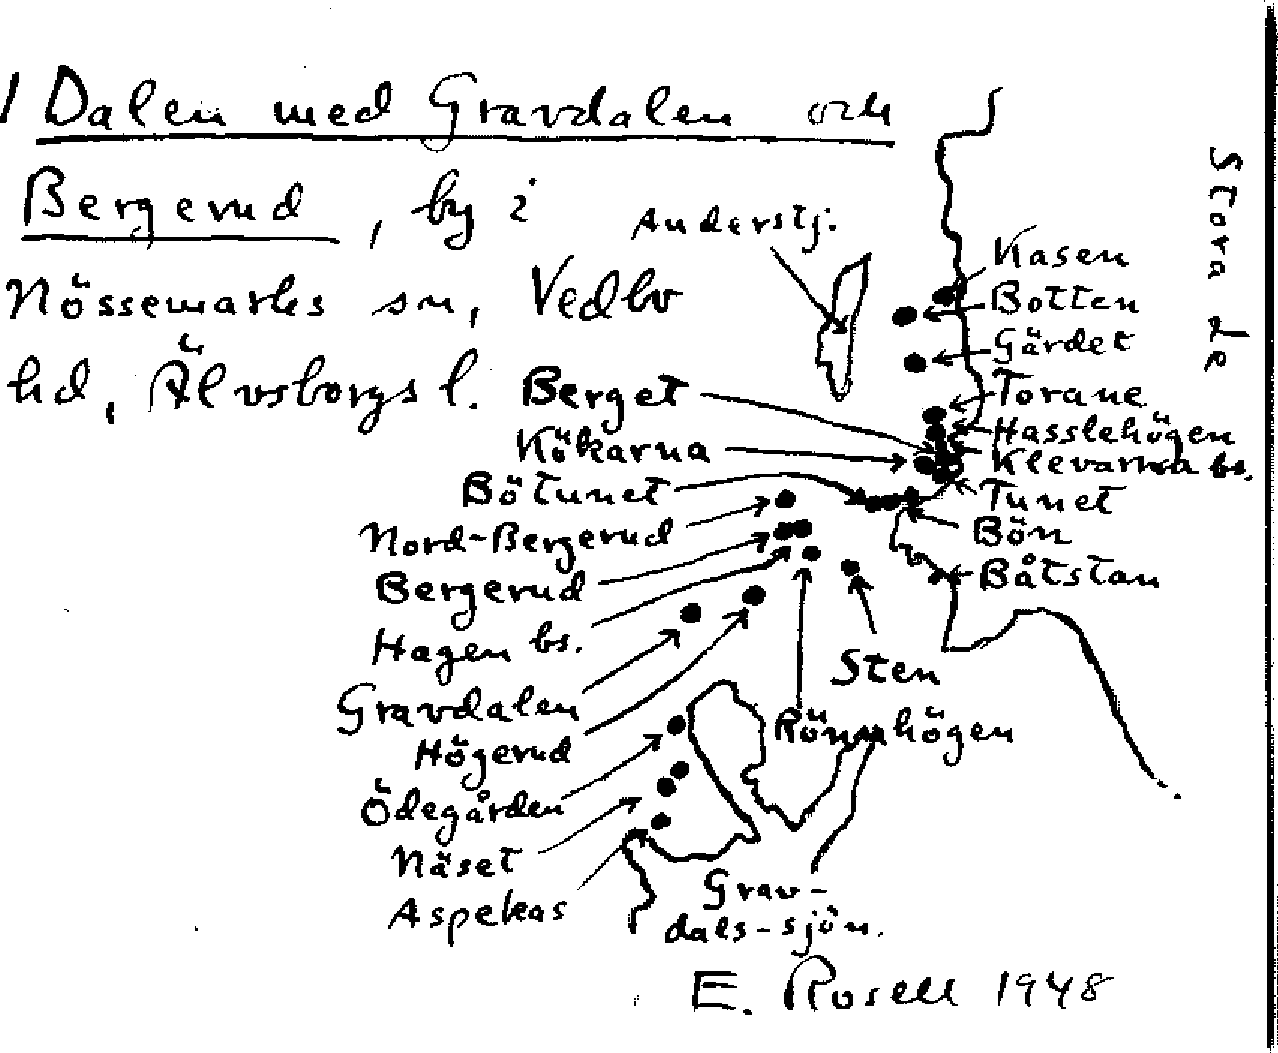 1 Dalen med Gravdalen och
Bergerud, by i
Nössemarks sn, Vedbo
hd, Älvsborgs l.
Anderstj.
Stora Le
Kasen
Botten
Gärdet
Torane
Hasslehögen
Klevarna bs.
Tunet
Bön
Båtstan
Berget
Kökarna
Bötunet
Nord-Bergerud
Bergerud
Hagen bs.
Gravdalen
Högerud
Ödegården
Näset
Aspekas
Sten
Rönnhögen
Grav-
dals-sjön.
E. Rosell 1948